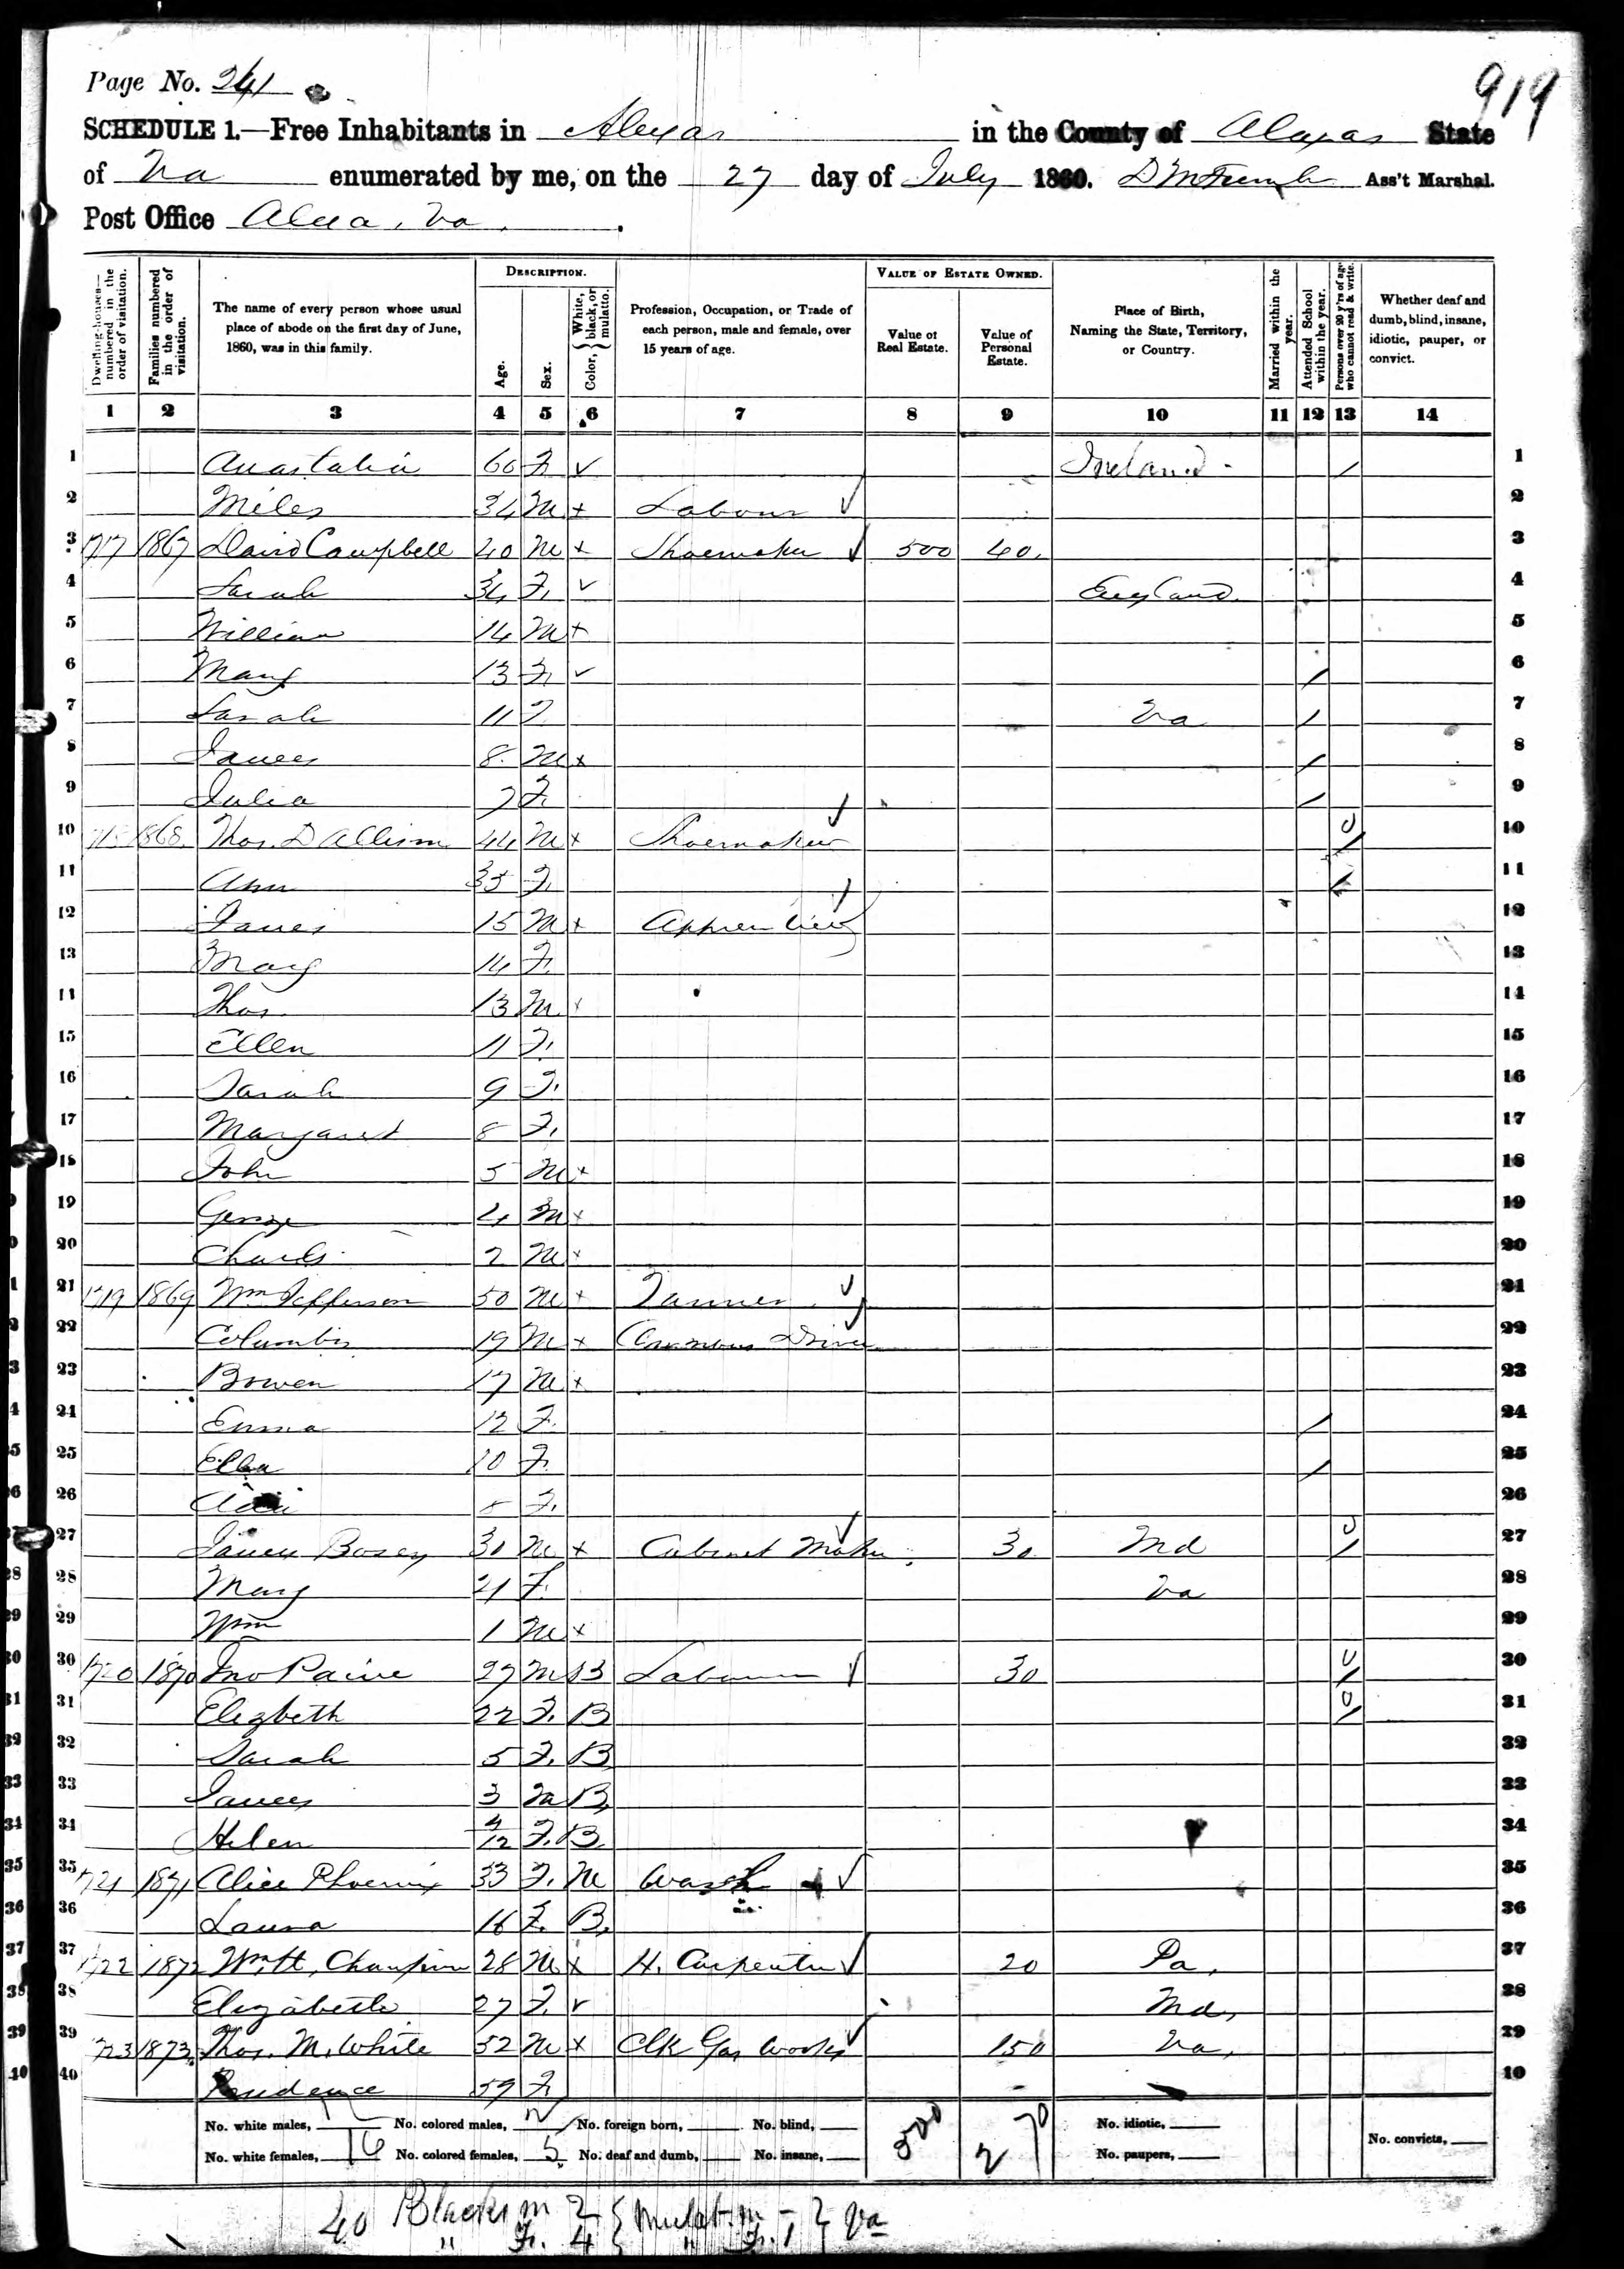 Page No. 241
919
SCHEDULE 1.—Free Inhabitants in Alexas in the County of Alexas State
of Va enumerated by me, on the 27 day of July 1860. Ass't Marshal.
Post Office Alexa, Va.
Dwelling-houses—numbered in the order of visitation.
Families numbered in the order of visitation.
The name of every person whose usual place of abode on the first day of June, 1860, was in this family.
DESCRIPTION.
Age.
Sex.
Color, White, black, or mulatto.
Profession, Occupation, or Trade of each person, male and female, over 15 years of age.
VALUE OF ESTATE OWNED.
Value of Real Estate.
Value of Personal Estate.
Place of Birth, Naming the State, Territory, or Country.
Married within the year.
Attended School within the year.
Persons over 20 y'rs of age who cannot read & write.
Whether deaf and dumb, blind, insane, idiotic, pauper, or convict.
1 2 3 4 5 6 7 8 9 10 11 12 13 14
1 Anastatia 60 F ✓ Ireland / 1
2 Miles 34 M x Labour ✓ 2
3 1717 1867 David Campbell 40 M x Shoemaker ✓ 500 40. 3
4 Sarah 34 F. ✓ England 4
5 William 14 M x 5
6 Mary 13 F. ✓ / 6
7 Sarah 11 F Va / 7
8 James 8 M x / 8
9 Julia 7 F. / 9
10 1718 1868 Thos. D Allison 44 M x Shoemaker ✓ / 10
11 Ann 35 F. / 11
12 James 15 M x Apprentice ✓ 12
13 Mary 14 F. 13
14 Thos 13 M x 14
15 Ellen 11 F. 15
16 Sarah 9 F. 16
17 Margaret 8 F. 17
18 John 5 M x 18
19 George 4 M x 19
20 Charls 2 M x 20
21 1719 1869 Wm Jefferson 50 M x Tanner ✓ 21
22 Columbus 19 M x Omnibus Driver ✓ 22
23 Bowen 17 M x 23
24 Emma 12 F. / 24
25 Ella 10 F. / 25
26 8 F. 26
27 James Posey 30 M x Cabinet Maker ✓ 30 Md / 27
28 Mary 21 F. Va 28
29 Wm 1 M x 29
30 1720 1870 Jno Paine 27 M B Labour ✓ 30 / 30
31 Elizbeth 22 F. B / 31
32 Sarah 5 F. B 32
33 James 3 M B 33
34 Helen 4/12 F. B. 34
35 1721 1871 Alice Phoenix 33 F. M Wash ✓ 35
36 Laura 16 F. B. 36
37 1722 1872 Wm H. Champion 28 M x H. Carpenter ✓ 20 Pa. 37
38 Elizabeth 27 F. ✓ Md, 38
39 1723 1873 Thos. M. White 52 M x Clk Gas Works ✓ 150 Va. 39
40 Prudence 59 F 40
No. white males, No. colored males, 2 No. foreign born, No. blind, 500 270 No. idiotic,
No. white females, 16 No. colored females, 5 No. deaf and dumb, No. insane, No. paupers, No. convicts,
40 Blacks m 2 { Mulat. m - } Va
" F. 4 { " F. 1 }